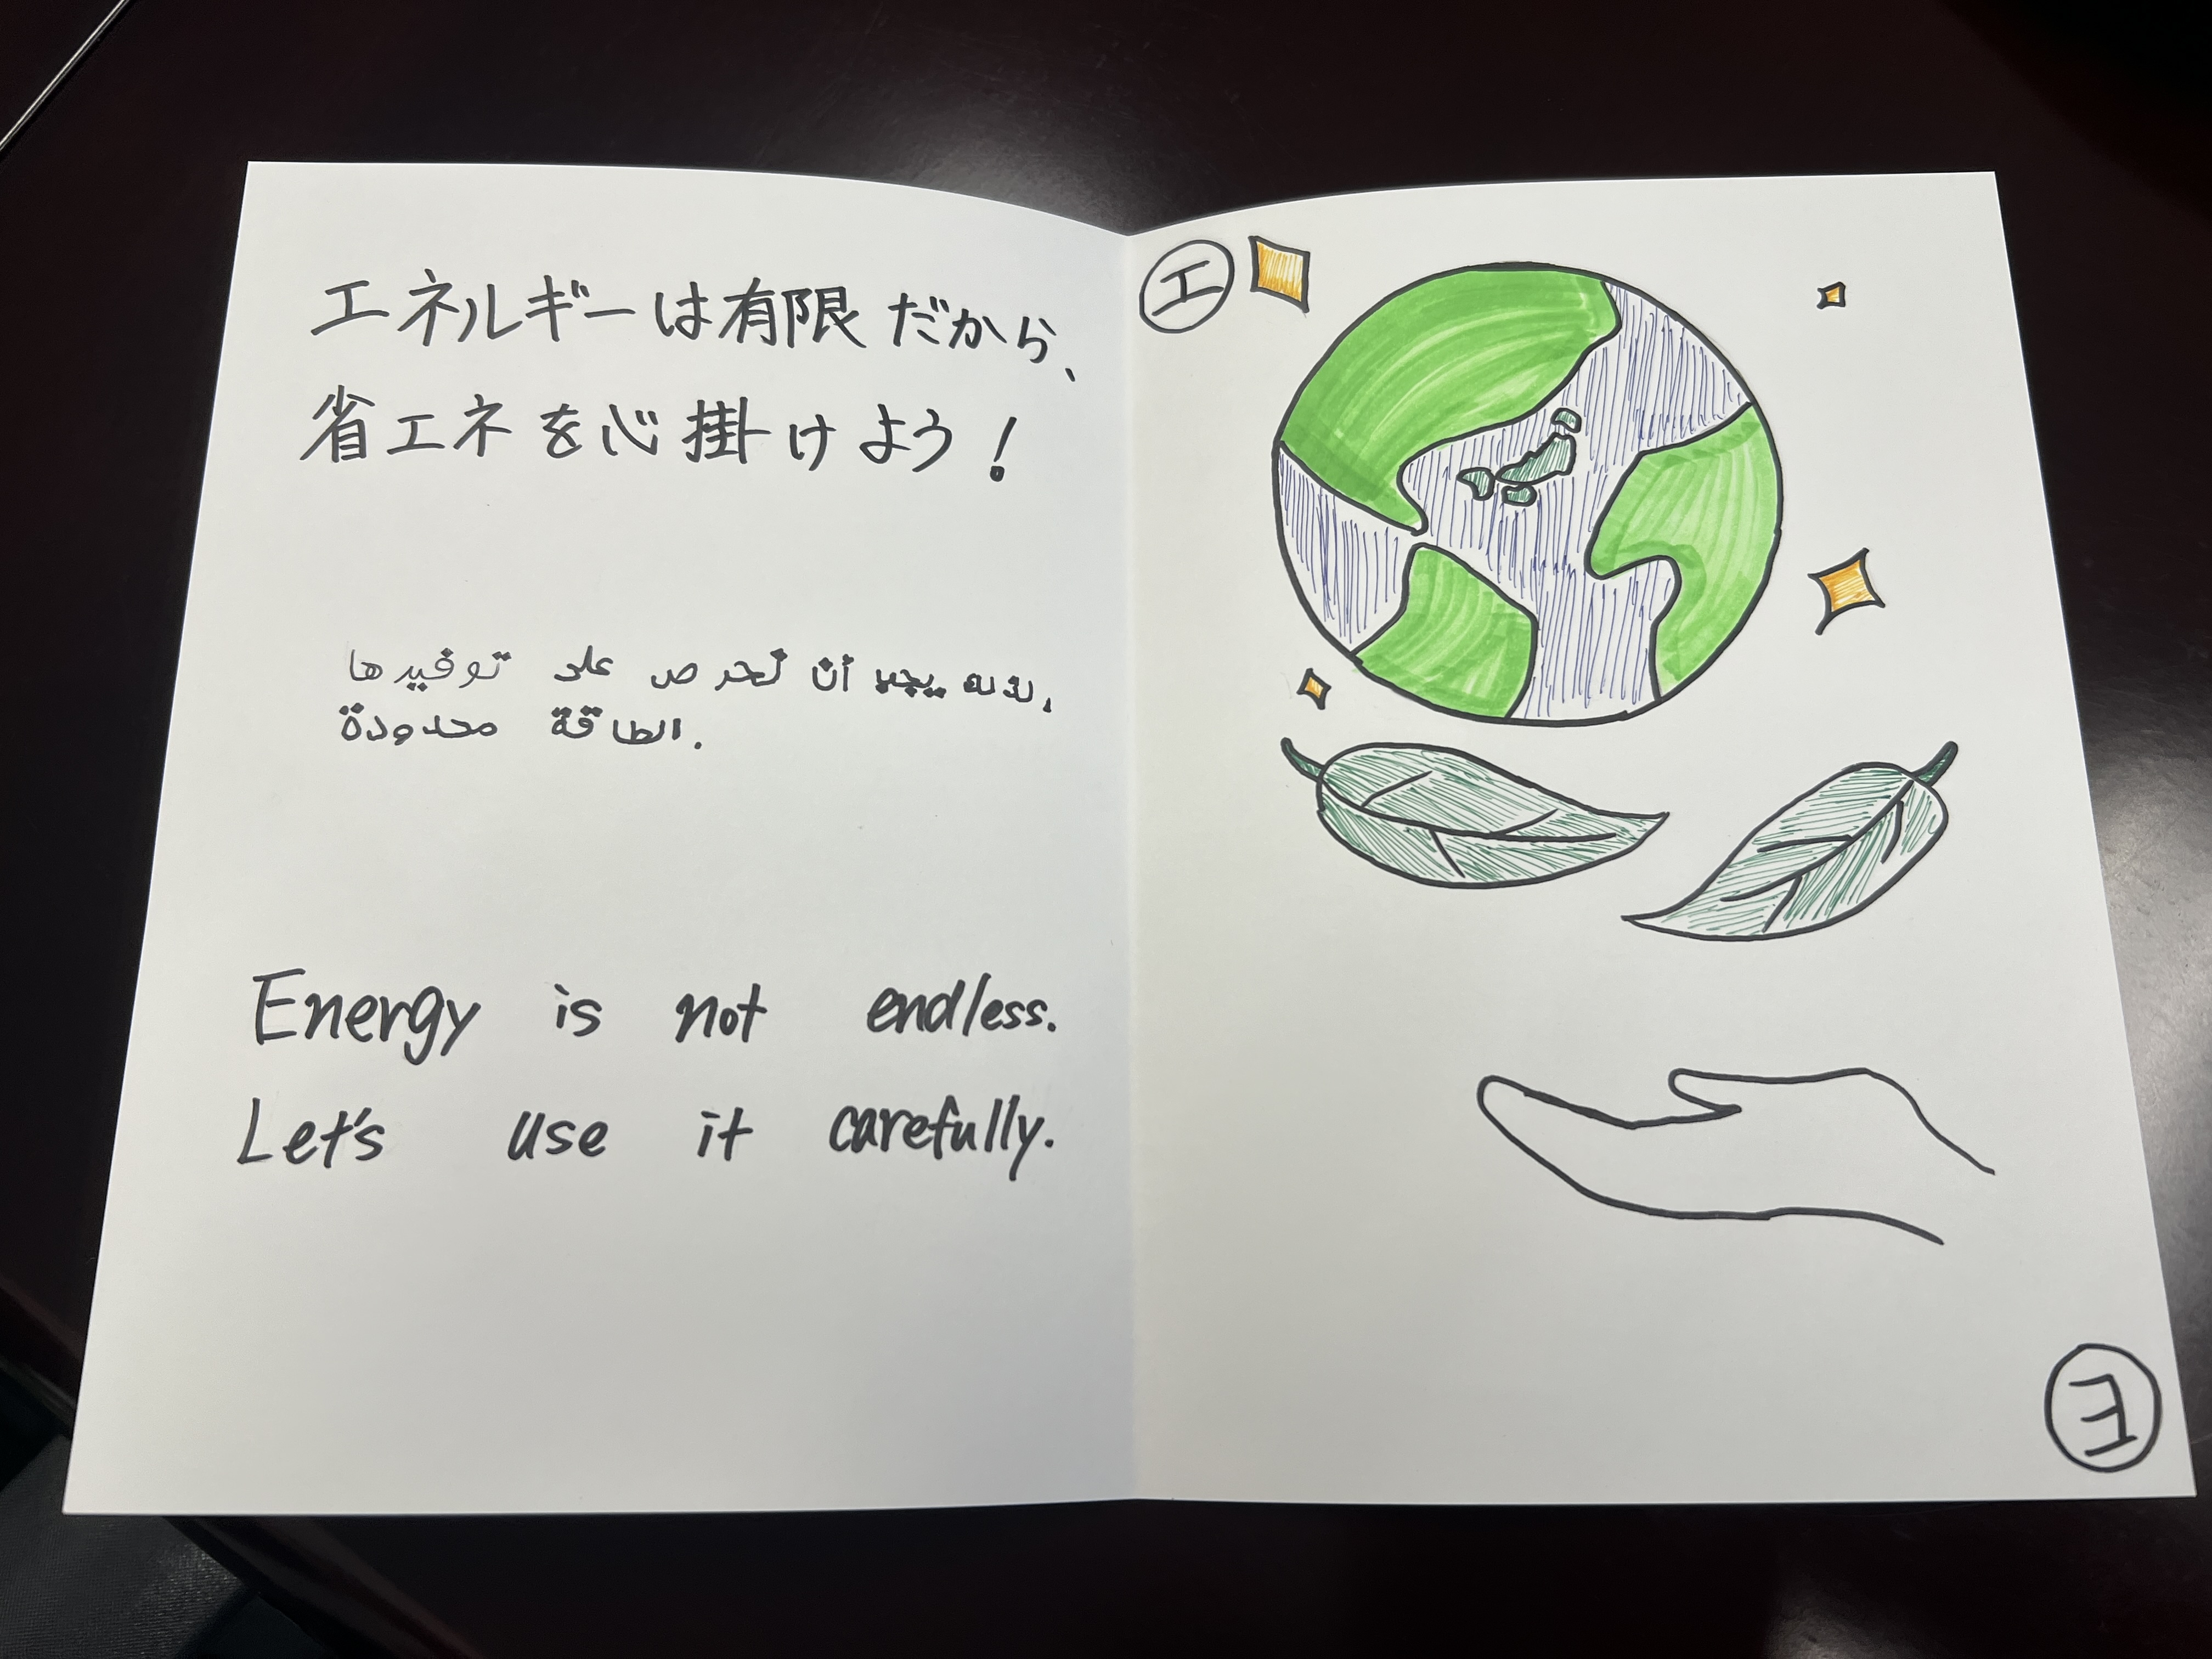 エネルギーは有限だから、
省エネを心掛けよう！
لذلك يجب أن نحرص على توفيرها
الطاقة محدودة.
Energy is not endless.
Let's use it carefully.
エ
E